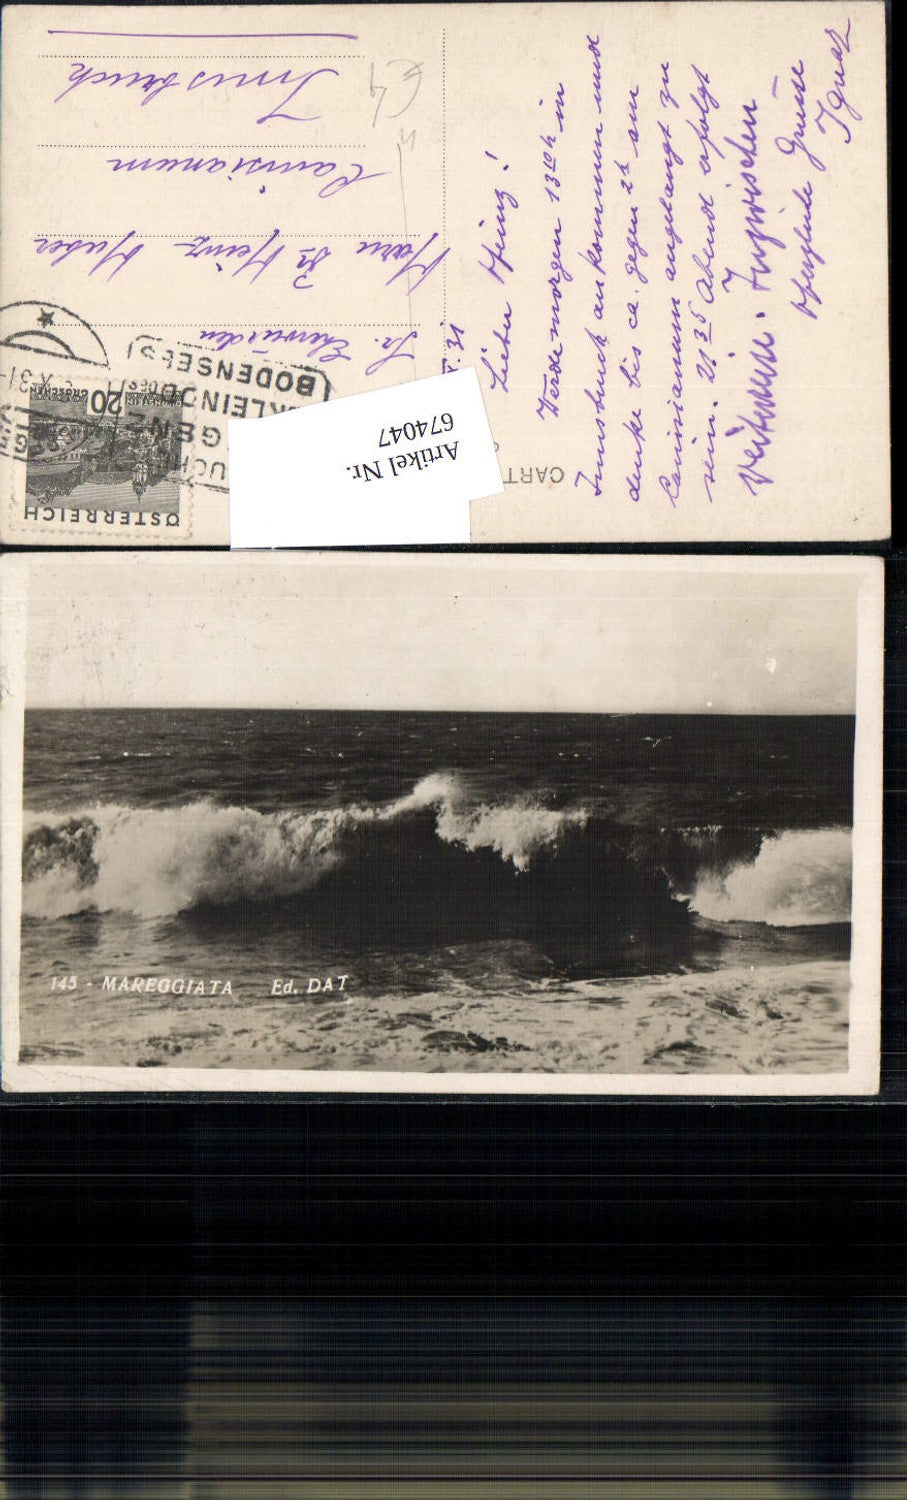 Lieber Heinz!
Werde morgen 13 10 h in
Innsbruck ankommen und
denke bis ca. gegen 2 h im
Canisianum angelangt zu
sein. 21 35 Abend erfolgt
Weiterreise. Inzwischen
herzliche Grüsse
Ignaz
31
CART
Sr. Ehrwürden
Herrn Heinz Huber
Canisianum
Innsbruck
ÖSTERREICH
20
GROSCHEN
BREGENZ
KLEINOD
BODENSEES
Artikel Nr.
674047
145 - MAREGGIATA Ed. DAT